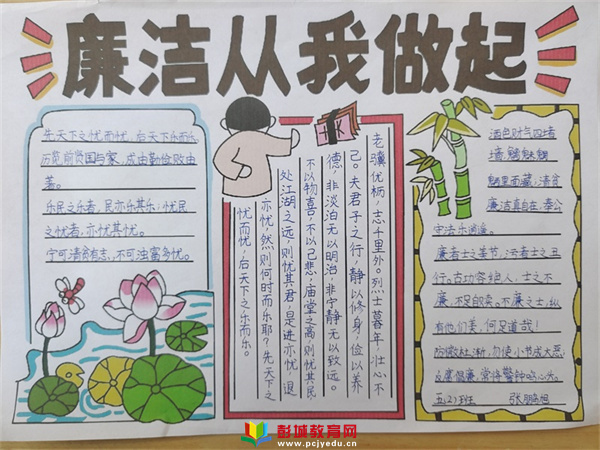 廉洁从我做起
先天下之忧而忧，后天下乐而乐
历览前贤国与家，成由勤俭败由
奢。
乐民之乐者，民亦乐其乐；忧民
之忧者，亦忧其忧。
宁可清贫有志，不可浊富多忧。
老骥伏枥，志千里外。烈士暮年，壮心不
己。夫君子之行，静以修身，俭以养
德，非淡泊无以明治，非宁静无以致远。
不以物喜，不以己悲，庙堂之高则忧其民
处江湖之远，则忧其君，是进亦忧，退
亦忧，然则何时而乐耶？先天下之
忧而忧，后天下之乐而乐。
酒色财气四堵
墙，魑魅魍
魉里面藏；清贫
廉洁真自在，奉公
守法乐逍遥。
廉者士之美节，污者士之丑
行。古功容绝人，士之不
廉，不足的卖。不廉之士，纵
有他们美，何足道哉！
防微杜渐，勿使小节成大恶；
反腐倡廉，常将警钟鸣心头。
五(2)班 张鹏旭
彭城教育网
www.pcjyedu.cn